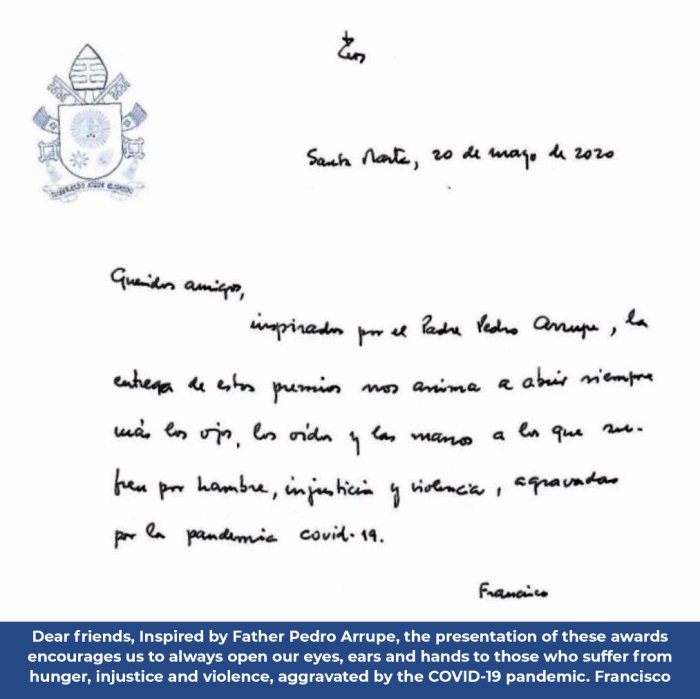 Santa Marta, 20 de mayo de 2020
Queridos amigos,
inspirados por el Padre Pedro Arrupe, la
entrega de estos premios nos anima a abrir siempre
más los ojos, los oídos y las manos a los que su-
fren por hambre, injusticia y violencia, agravadas
por la pandemia covid-19.
Francisco
Dear friends, Inspired by Father Pedro Arrupe, the presentation of these awards
encourages us to always open our eyes, ears and hands to those who suffer from
hunger, injustice and violence, aggravated by the COVID-19 pandemic. Francisco